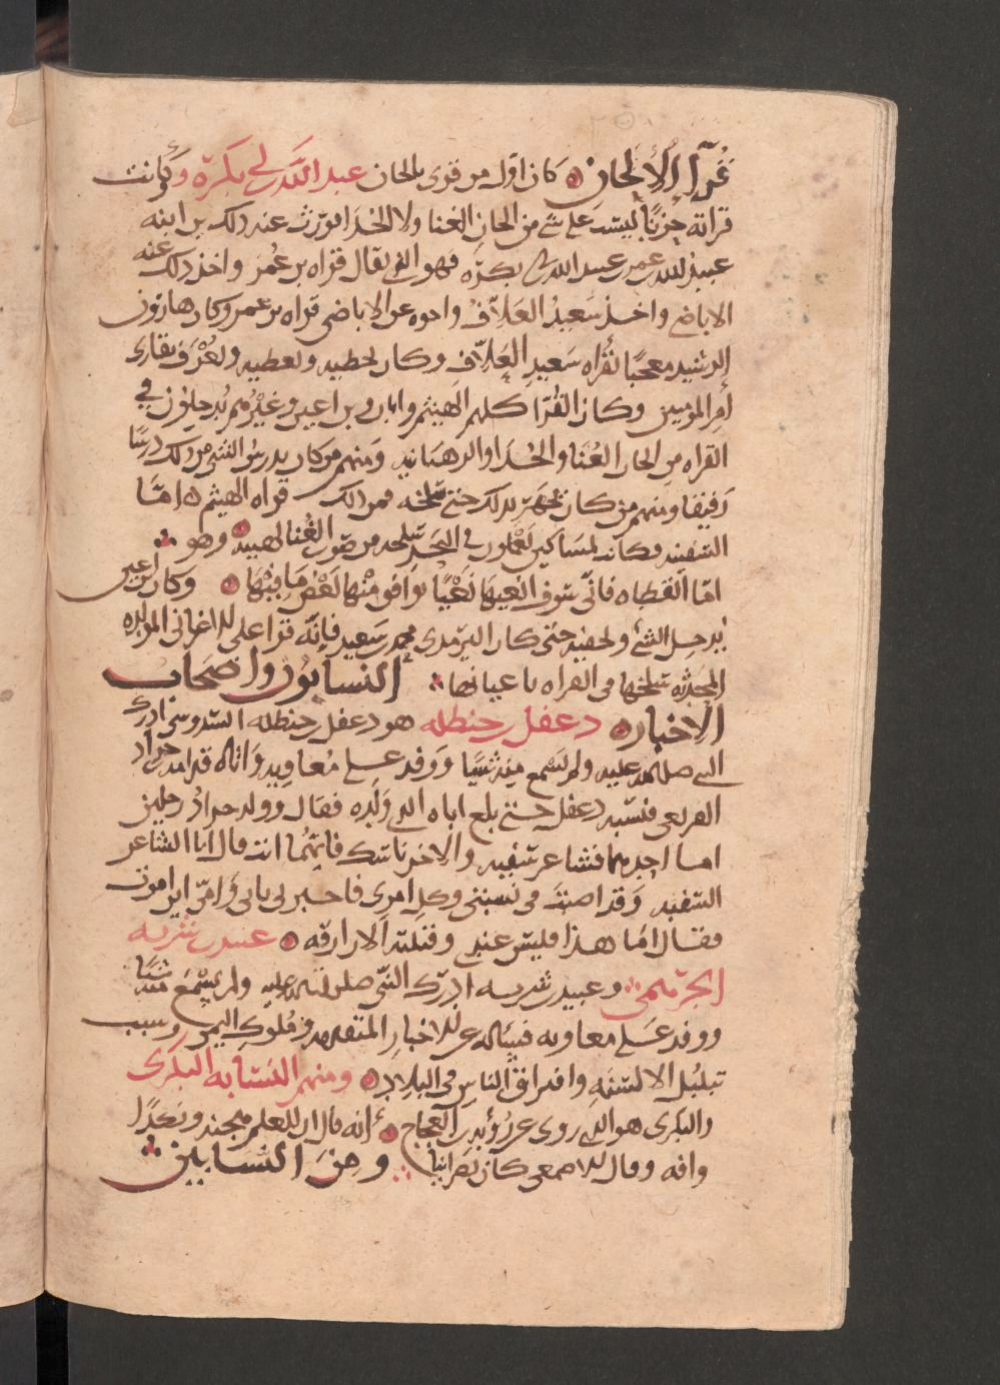 قرآ الألحان كان اول من قرى بالحان عبد الله بن ابي بكرة وكانت
قراته حزنًا ليست على شي من الحان الغنا ولا الحدا فورث عنه ذلك بن ابنه
عبيد الله عمر بن عبيد الله بن ابي بكرة فهو الذي يقال قراه بن عمر واخذ ذلك عنه
الاباضي واخذ سعيد العلاف واخوه عن الاباضي قراه بن عمر وكان هارون
الرشيد معجبًا بقراه سعيد العلاف وكان يحظيه ويعطيه ويعرف بقارى
امير المومنين وكان القرا كلهم الهيثم وابان وبن اعين وغيرهم يدخلون في
القراه من الحان الغنا والحدا والرهبانيه ومنهم من كان يدرس الشي من ذلك درسًا
رفيقا ومنهم من كان يجهر بذلك حتى سلخه فمن ذلك قراه الهيثم اما
السفينه فكانت لمساكين يعملون في البحر سلخه من صوت الغنا كهيئه وهو
اما القطاه فاني سوف انعتها نعتًا يوافق منها بعض ما فيها وكان بن اعين
يدخل الشي ويخفيه حتى كان الترمذي محمد بن سعيد فانه قرا على الاغاني المولده
المحدثه سلخها في القراه باعيانها النسابون واصحاب
الاخبار دغفل بن حنظله هو دغفل بن حنظله السدوسي ادرك
النبي صلى الله عليه ولم يسمع منه شيا ووفد على معاويه واتاه قدامه بن جراد
القريعي فنسبه دغفل حتى بلغ اباه الذي ولده فقال وولد جراد رجلين
اما احدهما فشاعر سفيه والاخر ناسك فايهما انت قال انا الشاعر
السفيه وقد اصبت في نسبتي وكل امري فاخبرني بابي وامي ابن اموت
فقال اما هذا فليس عندي وقتلته الازارقه عبيد بن شريه
الجرهمي وعبيد بن شريه ادرك النبي صلى الله عليه ولم يسمع منه شيا
ووفد على معاويه فسأله عن الاخبار المتقدمه وملوك اليمن وسبب
تبلبل الالسنه وافتراق الناس في البلاد ومنهم النسابه البكرى
والبكرى هو الذي روى عن رؤبه بن العجاج انه قال ان للعلم هجنه ونكدًا
وافه وقال الاصمعي كان نصرانيا ومن النسابين